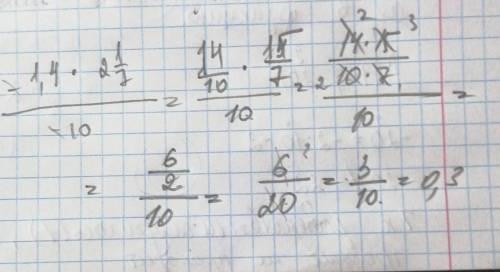 (-1,4 · 2 1/7)/(-10) = (14/10 · 15/7)/10 = ((14 · 15)/(10 · 7))/10 =
= (6/2)/10 = 6/20 = 3/10 = 0,3